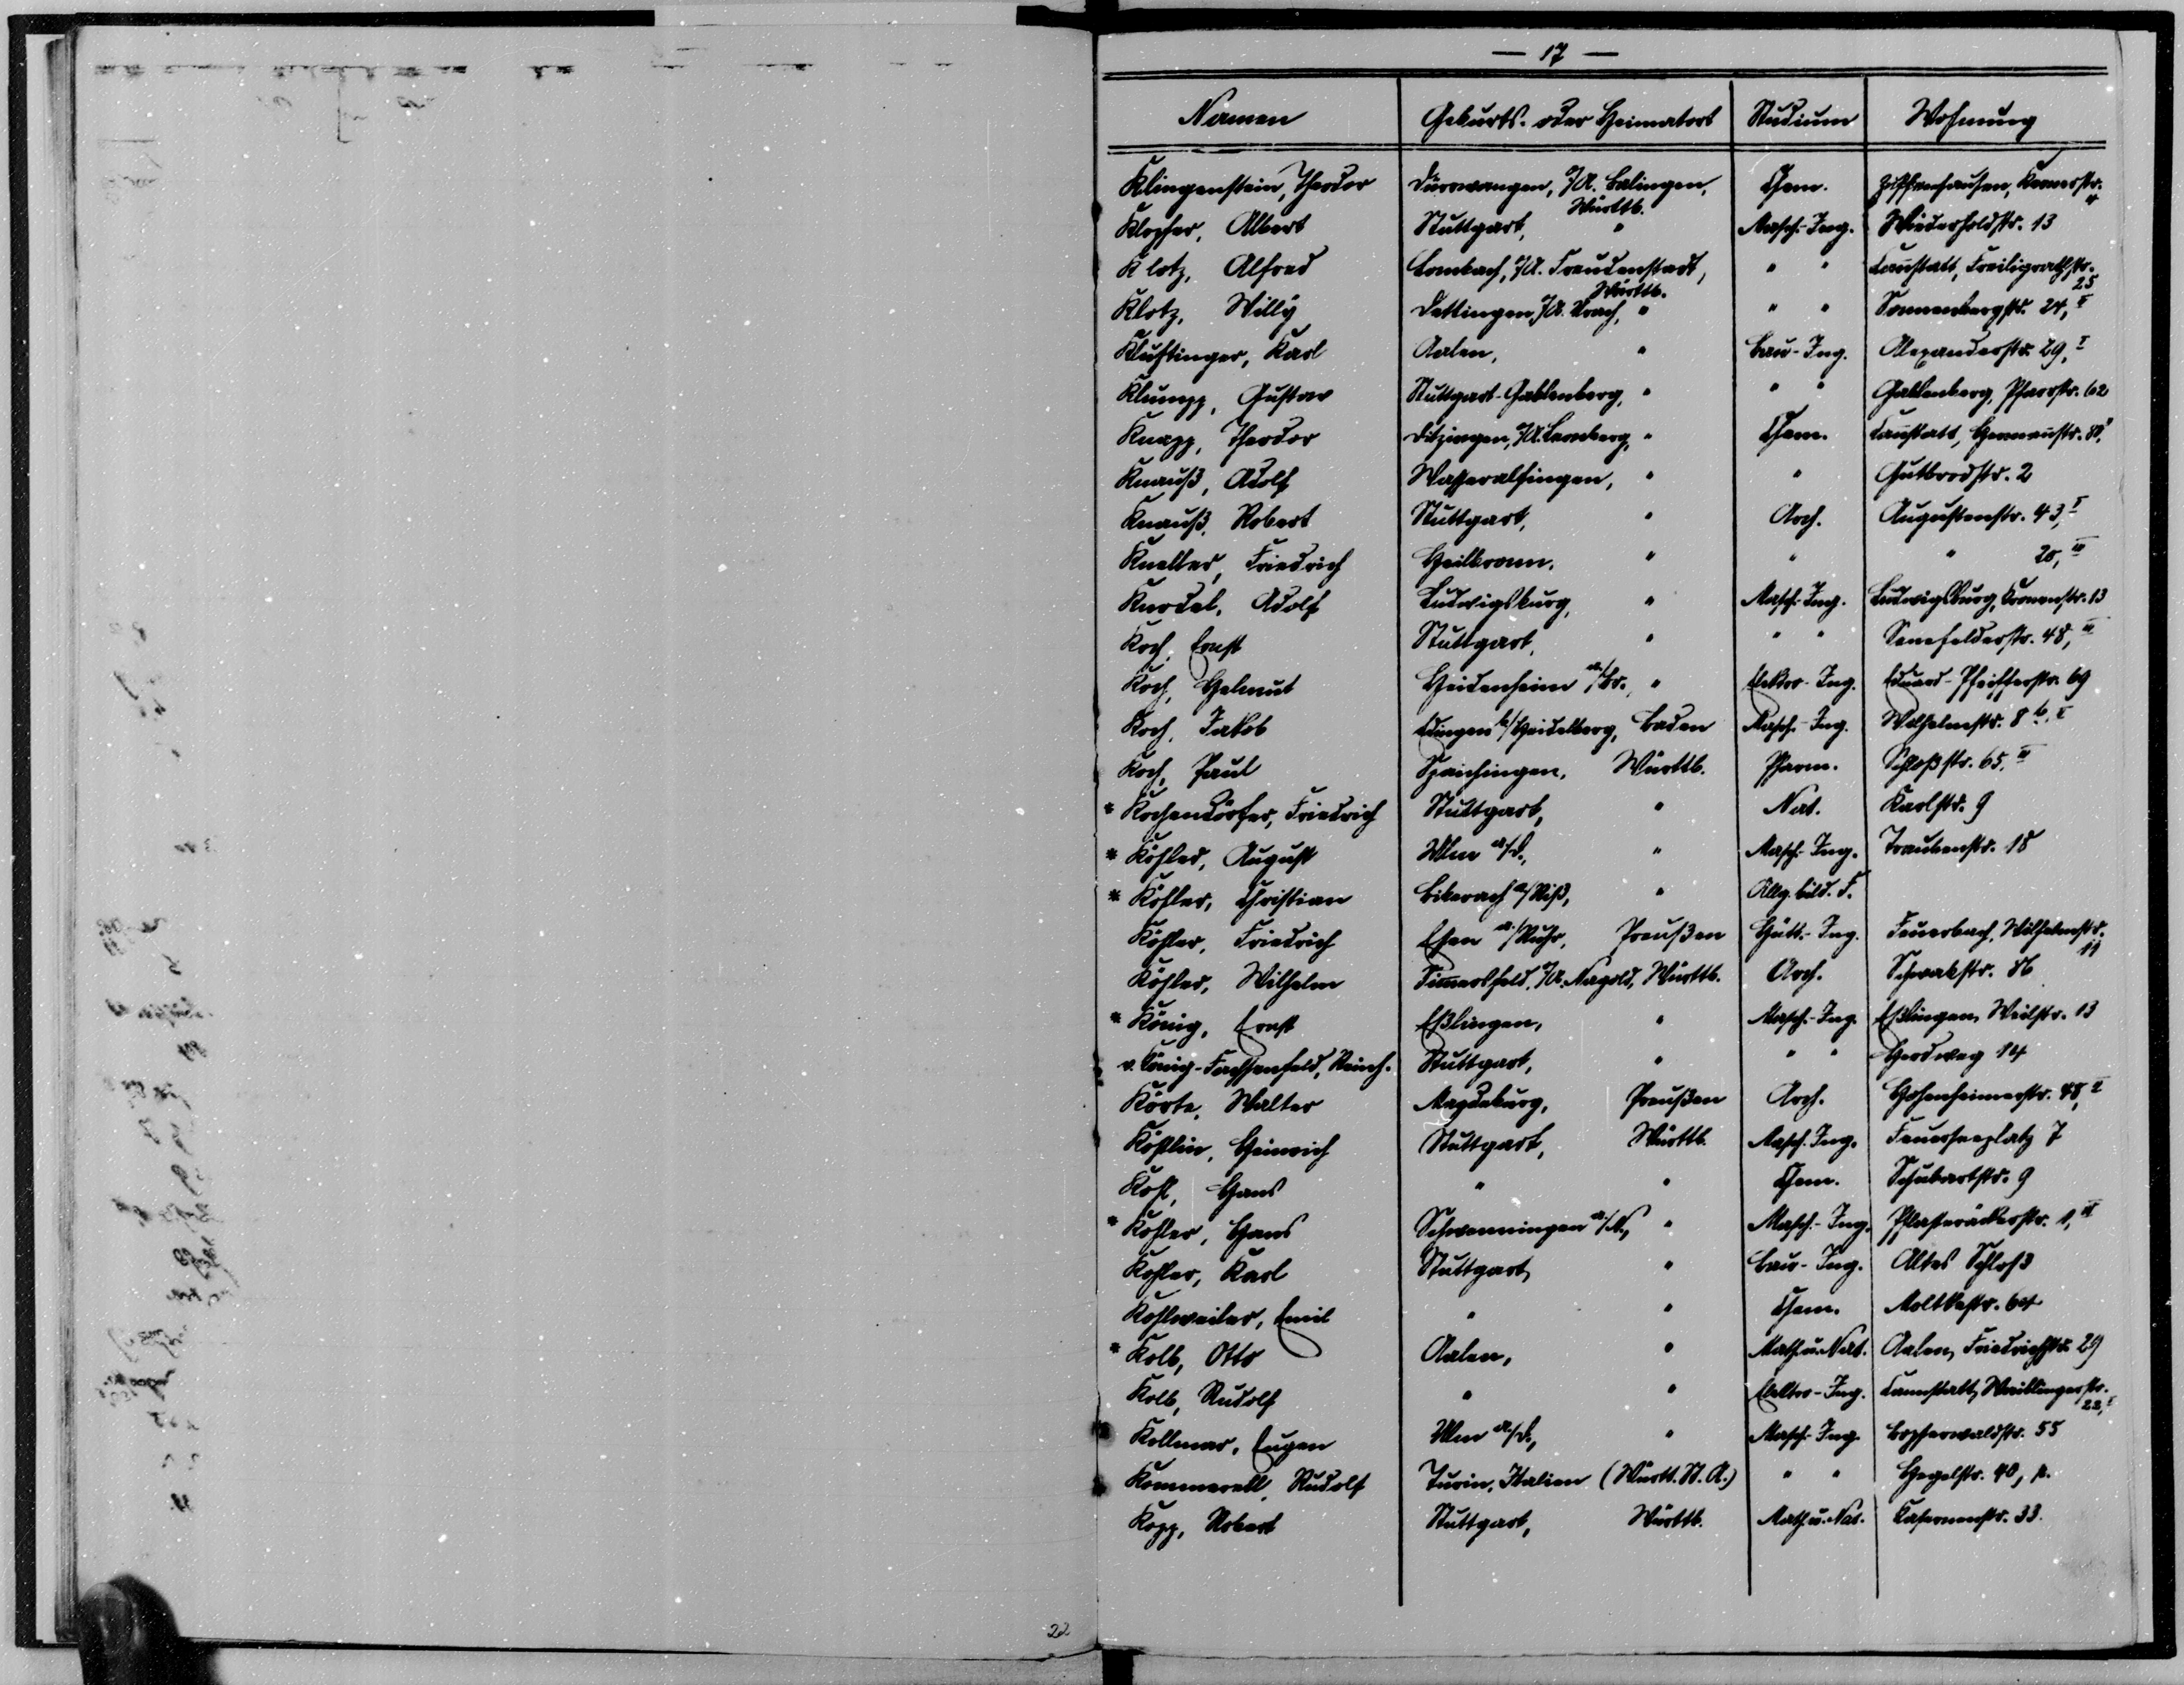 — 17 —
Namen Geburts- oder Heimatort Studium Wohnung
Klingenstein, Theodor Dürrwangen, O/A. Balingen, Württb. Chem. Zuffenhausen, Kronenstr. 4
Klopfer, Albert Stuttgart, " Masch.-Ing. Wiederholdstr. 13
Klotz, Alfred Lombach, O/A. Freudenstadt, Württb. " " Cannstatt, Freiligrathstr. 25
Klotz, Willy Dettingen O/A. Urach, " " " Sonnenbergstr. 24, II
Kluftinger, Karl Aalen, " Bau-Ing. Alexanderstr. 29, I
Klumpp, Gustav Stuttgart-Gablenberg, " " " Gablenberg, Pfarrstr. 62
Knapp, Theodor Ditzingen, O/A. Leonberg, " Chem. Cannstatt,
Knauß, Adolf Wasseralfingen, " " Gutbrodstr. 2
Knauß, Robert Stuttgart, " Arch. Augustenstr. 43, I
Kneller, Friedrich Heilbronn, " " " 20, III
Knodel, Adolf Ludwigsburg, " Masch.-Ing. Ludwigsburg, Kronenstr. 13
Koch, Ernst Stuttgart, " " " Senefelderstr. 48, III
Koch, Helmut Heidenheim a/Br., " Elektro-Ing. Eduard-Pfeifferstr. 69
Koch, Jakob Edingen b/Heidelberg, Baden Masch.-Ing. Wilhelmstr. 8 b, I
Koch, Paul Spaichingen, Württb. Pharm. Schloßstr. 65, II
* Kochendörfer, Friedrich Stuttgart, " Nat. Karlstr. 9
* Köhler, August Ulm a/D., " Masch.-Ing. Traubenstr. 18
* Köhler, Christian Biberach a/Riß, " Allg. bild. F.
Köhler, Friedrich Essen a/Ruhr, Preußen Hütt.-Ing. Feuerbach, Wilhelmstr. 11
Köhler, Wilhelm Simmersfeld, O/A. Nagold, Württb. Arch. Schwabstr. 86
* König, Ernst Eßlingen, " Masch.-Ing. Eßlingen, Weilstr. 13
v. König-Fachsenfeld, Reinh. Stuttgart, " " " Herdweg 14
Körte, Walter Magdeburg, Preußen Arch. Hohenheimerstr. 48, II
Köstlin, Heinrich Stuttgart, Württb. Masch. Ing. Feuerseeplatz 7
Kohl, Hans " " Chem. Schubartstr. 9
* Kohler, Hans Schwenningen a/N., " Masch.-Ing. Pflasteräckerstr. 1, II
Kohler, Karl Stuttgart, " Bau-Ing. Altes Schloß
Kohlweiler, Emil " " Chem. Moltkestr. 64
* Kolb, Otto Aalen, " Math. u. Nat. Aalen, Friedrichstr. 29
Kolb, Rudolf " " Elektro-Ing. Cannstatt, Waiblingerstr. 22, I
Kollmar, Eugen Ulm a/D., " Masch.-Ing. Bopserwaldstr. 55
Kommerell, Rudolf Turin, Italien (Württ. St. A.) " " Hegelstr. 40, p.
Kopp, Robert Stuttgart, Württb. Math. u. Nat. Kasernenstr. 33.
22